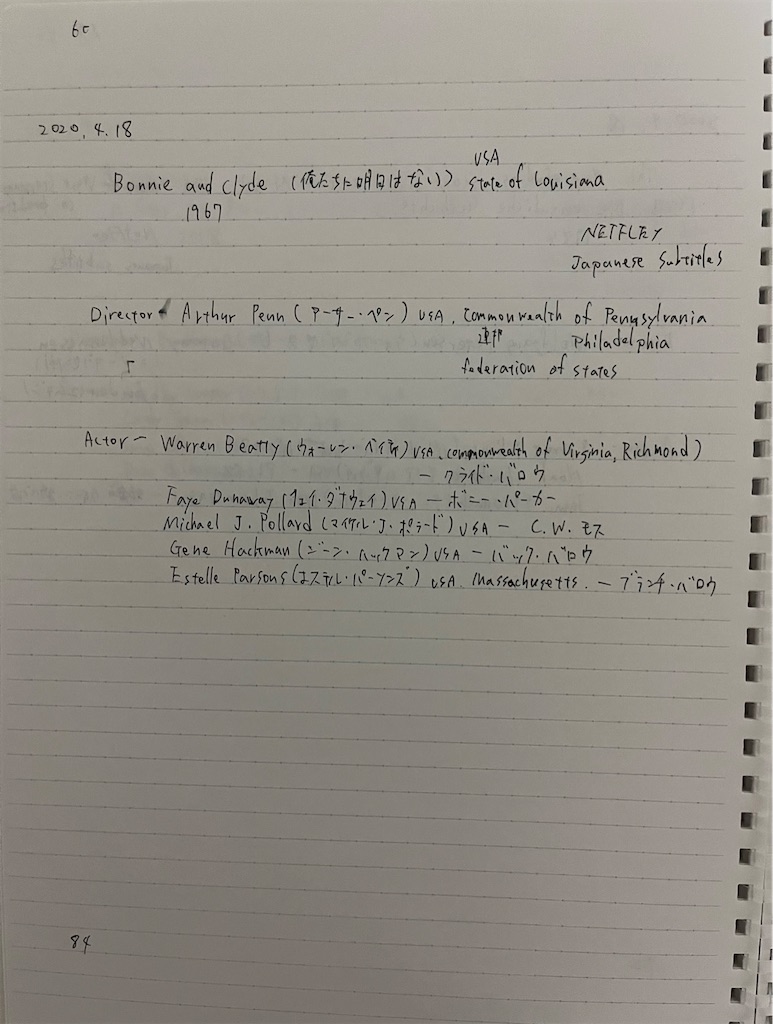 60
2020, 4. 18
USA
Bonnie and Clyde (俺たちに明日はない) state of Louisiana
1967
NETFLEX
Japanese Subtitles
Director - Arthur Penn (アーサー・ペン) USA, Commonwealth of Pennsylvania
連邦 Philadelphia
「 federation of states
Actor - Warren Beatty (ウォーレン・ベイティ) USA, commonwealth of Virginia, Richmond)
- クライド・バロウ
Faye Dunaway (フェイ・ダナウェイ) USA - ボニー・パーカー
Michael J. Pollard (マイケル・J・ポラード) USA - C.W. モス
Gene Hackman (ジーン・ハックマン) USA - バック・バロウ
Estelle Parsons (エステル・パーソンズ) USA, Massachusetts. - ブランチ・バロウ
84